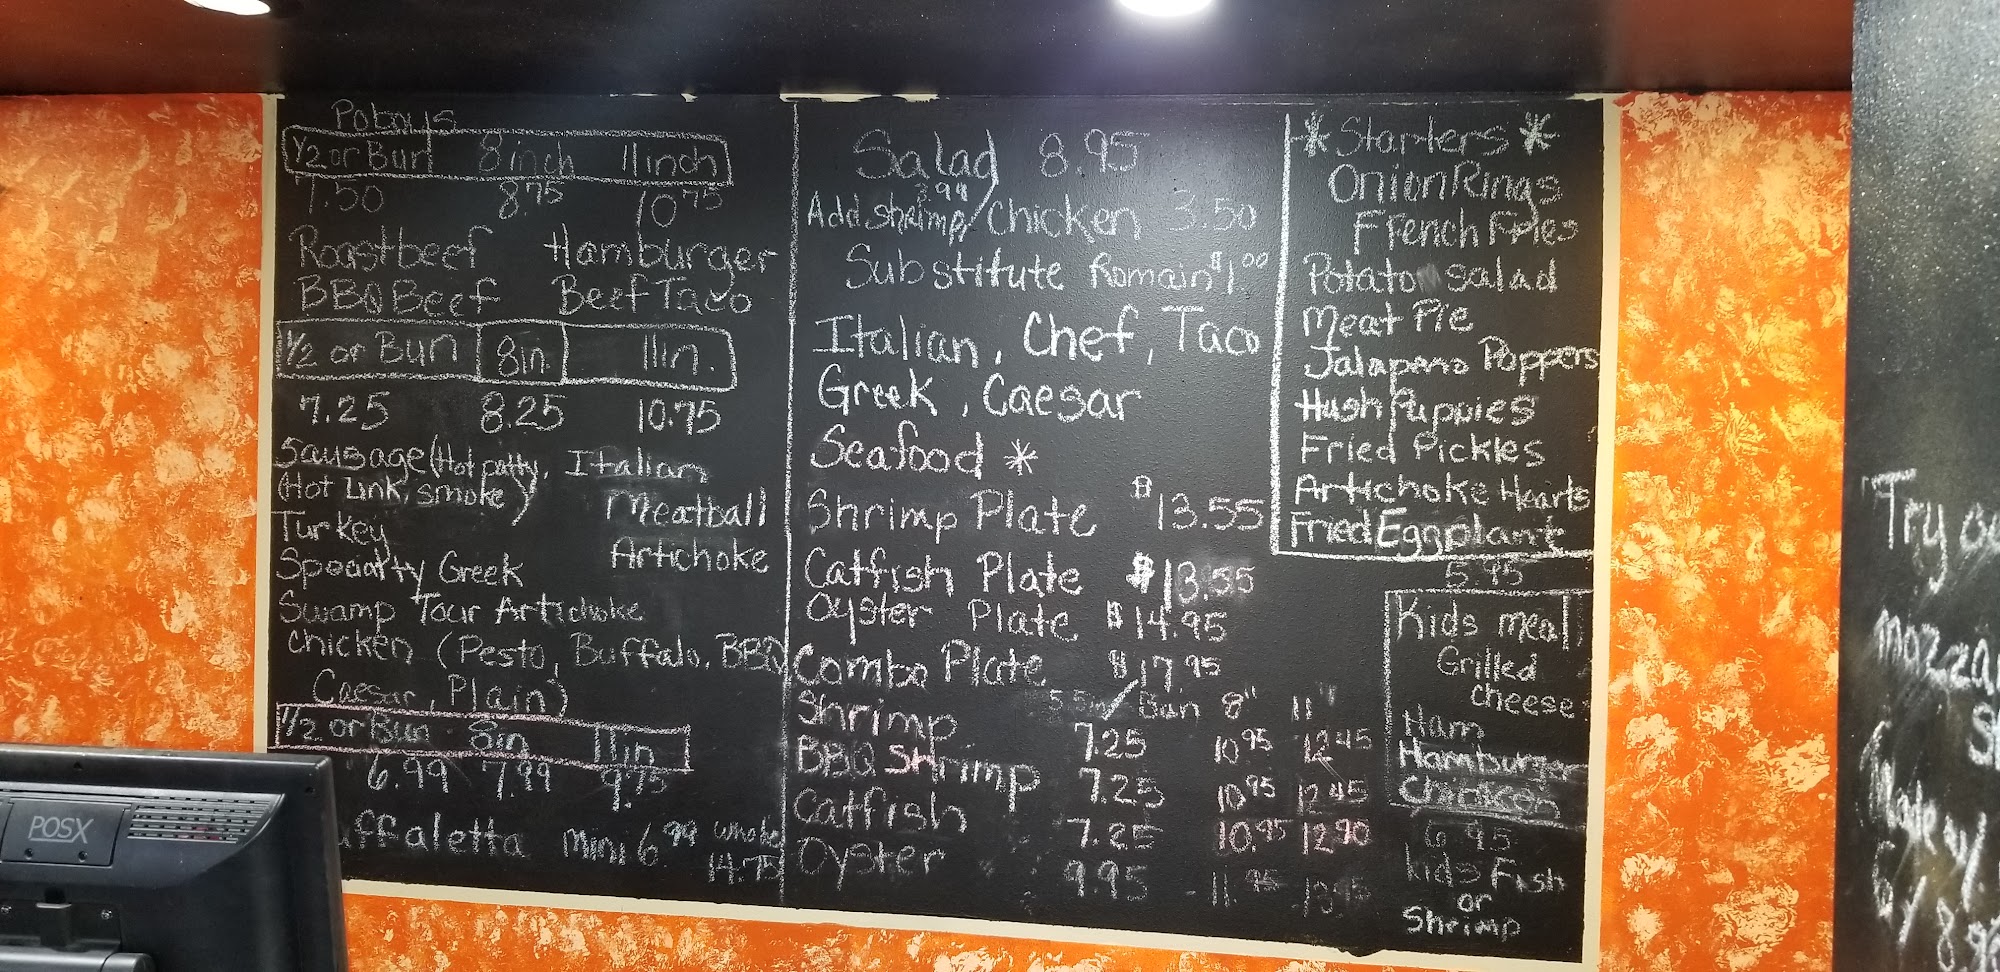 Poboys
1/2 or Bun 8 inch 11 inch
7.50 8.75 10.75
Roastbeef Hamburger
BBQ Beef Beef Taco
1/2 or Bun 8in. 11in.
7.25 8.25 10.75
Sausage (Hot patty, Italian
(Hot Link, smoke) Meatball
Turkey Artichoke
Specialty Greek
Swamp Tour Artichoke
Chicken (Pesto, Buffalo, BBQ
Caesar, Plain)
1/2 or Bun 8in 11in
6.99 7.99 9.75
uffaletta mini 6.99 whole
14.75
Salad 8.95
3.99
Add shrimp/Chicken 3.50
Substitute Romain $1.00
Italian, Chef, Taco
Greek, Caesar
Seafood *
Shrimp Plate $13.55
Catfish Plate $13.55
Oyster Plate $14.95
Combo Plate $17.95
5.5in/Bun 8" 11"
Shrimp 7.25 10.95 12.45
BBQ Shrimp 7.25 10.95 12.45
Catfish 7.25 10.95 12.90
Oyster 9.95 11.95
* Starters *
Onion Rings
French Fries
Potato salad
Meat Pie
Jalapeno Poppers
Hush Puppies
Fried Pickles
Artichoke Hearts
Fried Eggplant
5.95
Kids meal
Grilled
cheese
Ham
Hamburger
Chicken
6.95
kids Fish
or
Shrimp
Try
mozza
POSX